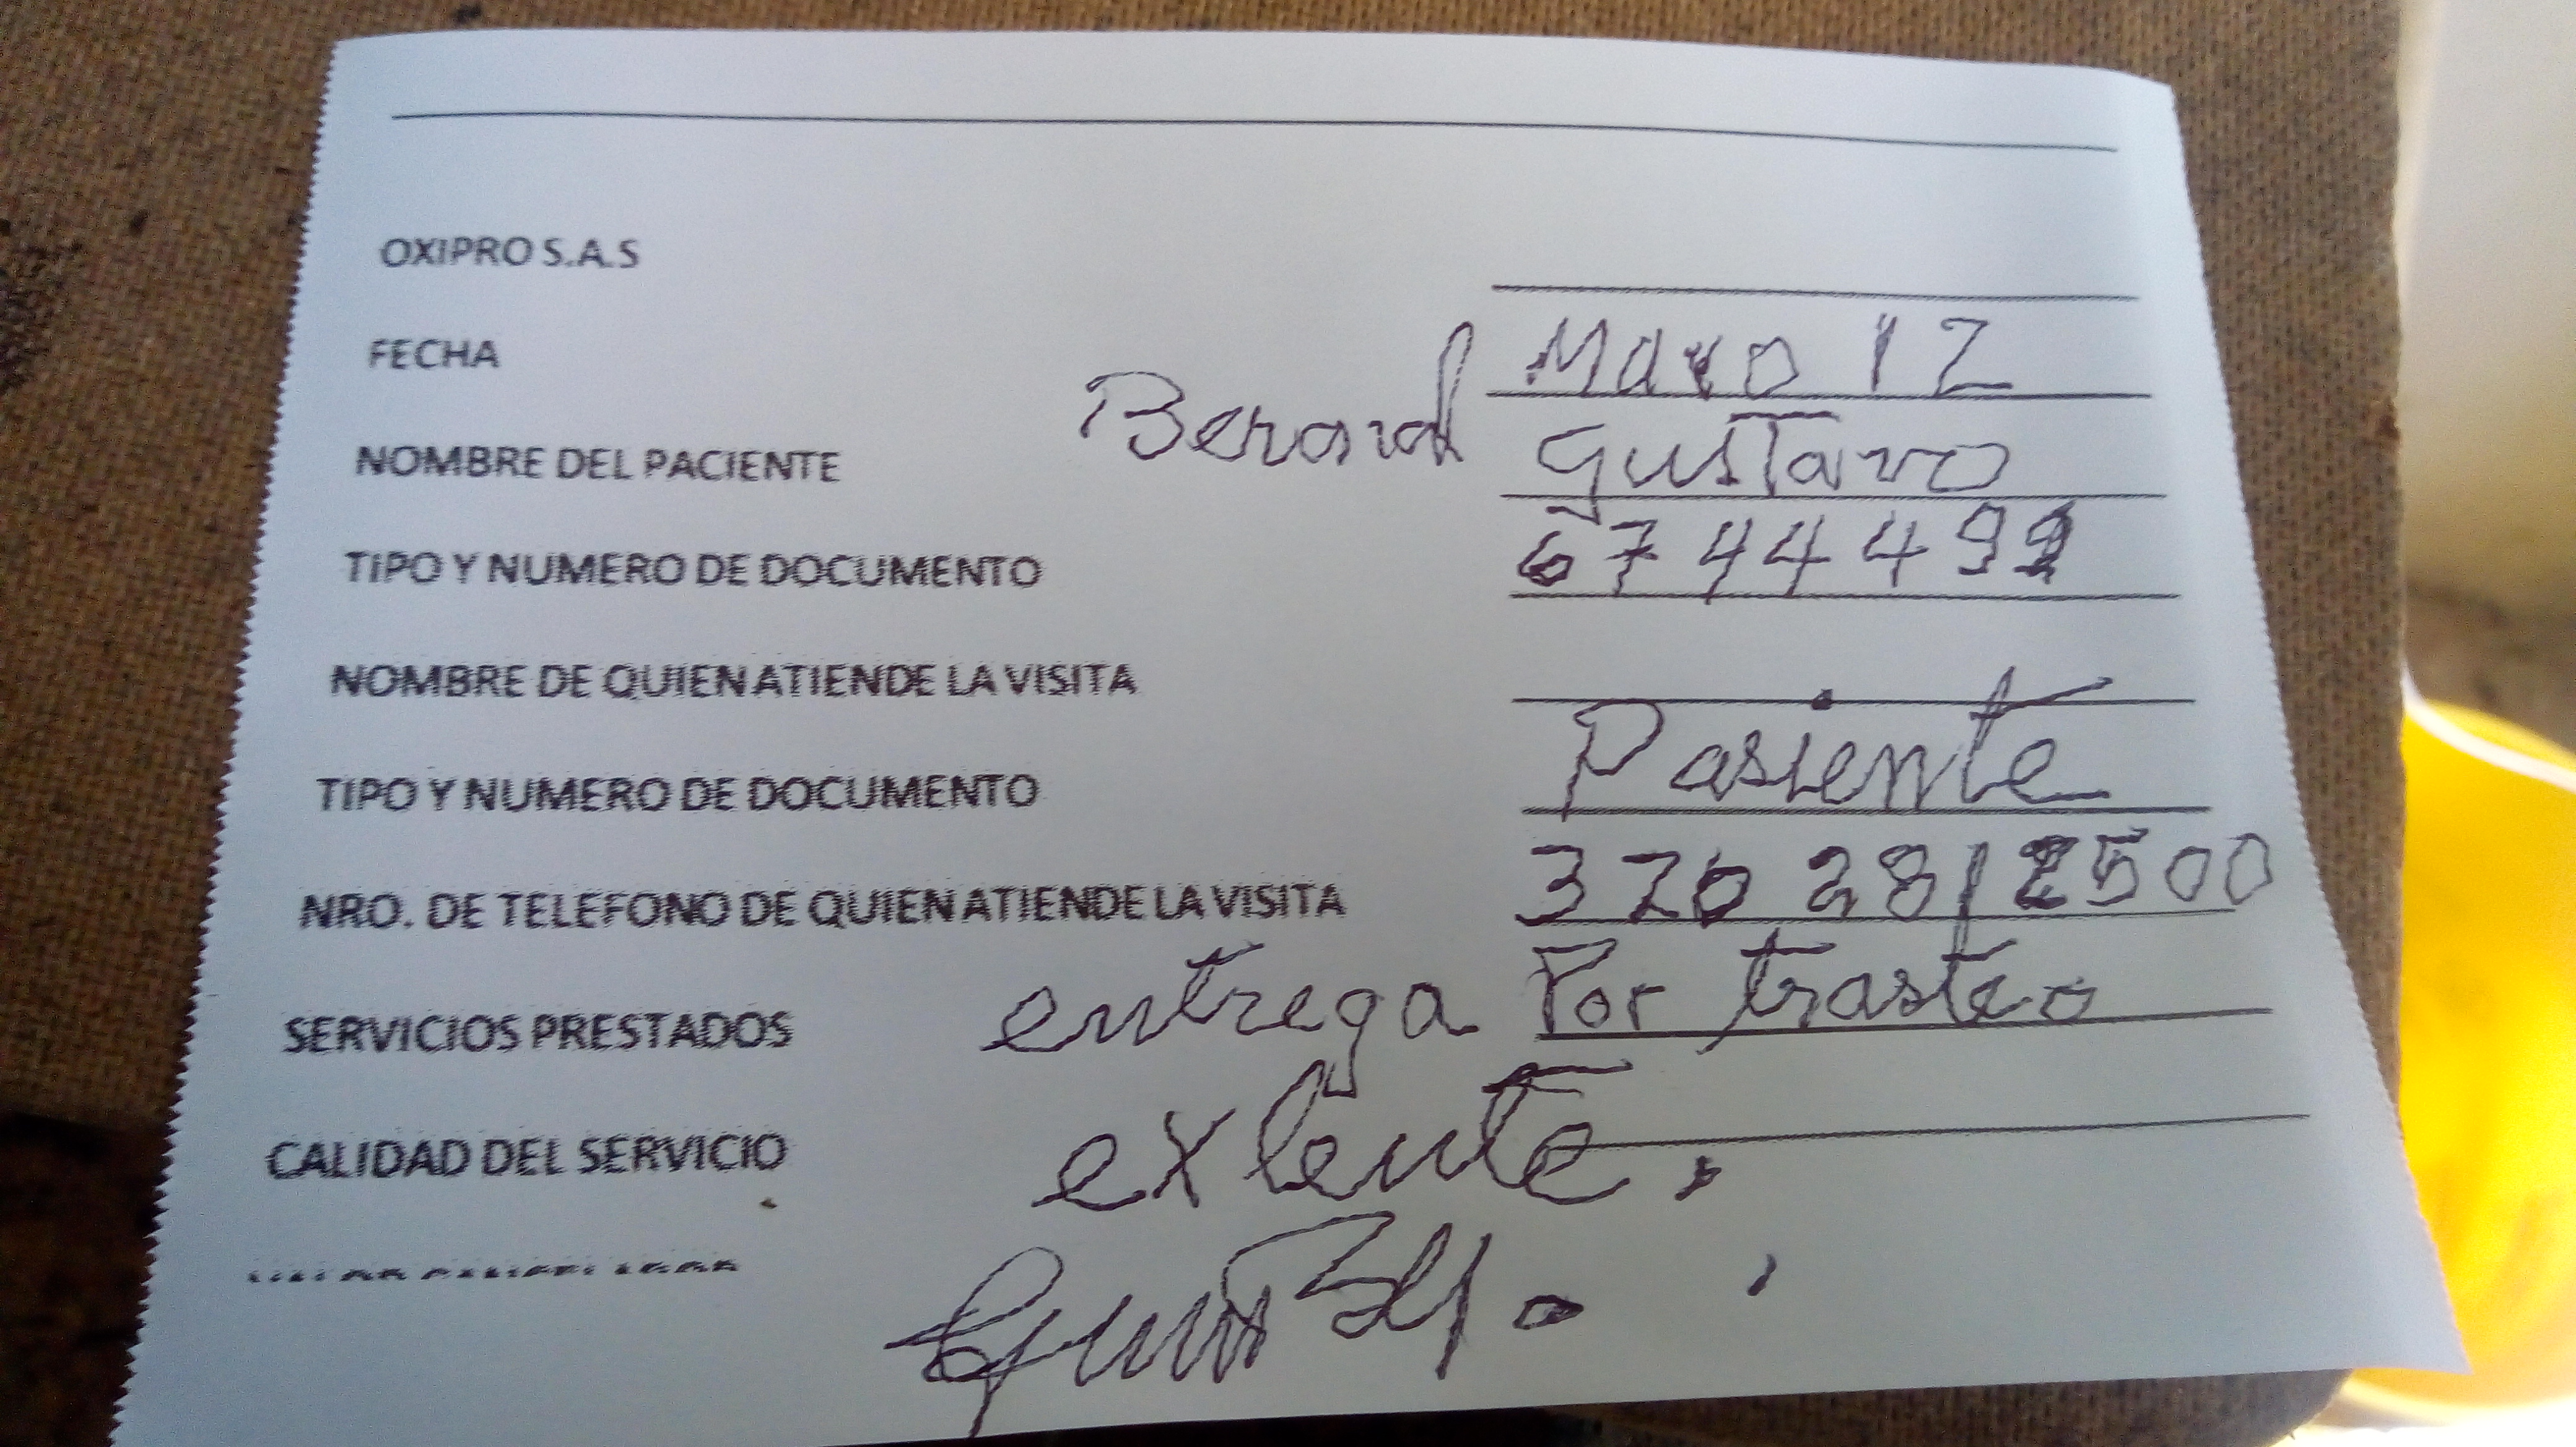 OXIPRO S.A.S
FECHA Mayo 12
NOMBRE DEL PACIENTE Gustavo
TIPO Y NUMERO DE DOCUMENTO 6744499
NOMBRE DE QUIEN ATIENDE LA VISITA
TIPO Y NUMERO DE DOCUMENTO Pasiente
NRO. DE TELEFONO DE QUIEN ATIENDE LA VISITA
SERVICIOS PRESTADOS entrega Por trasteo
CALIDAD DEL SERVICIO exlente.